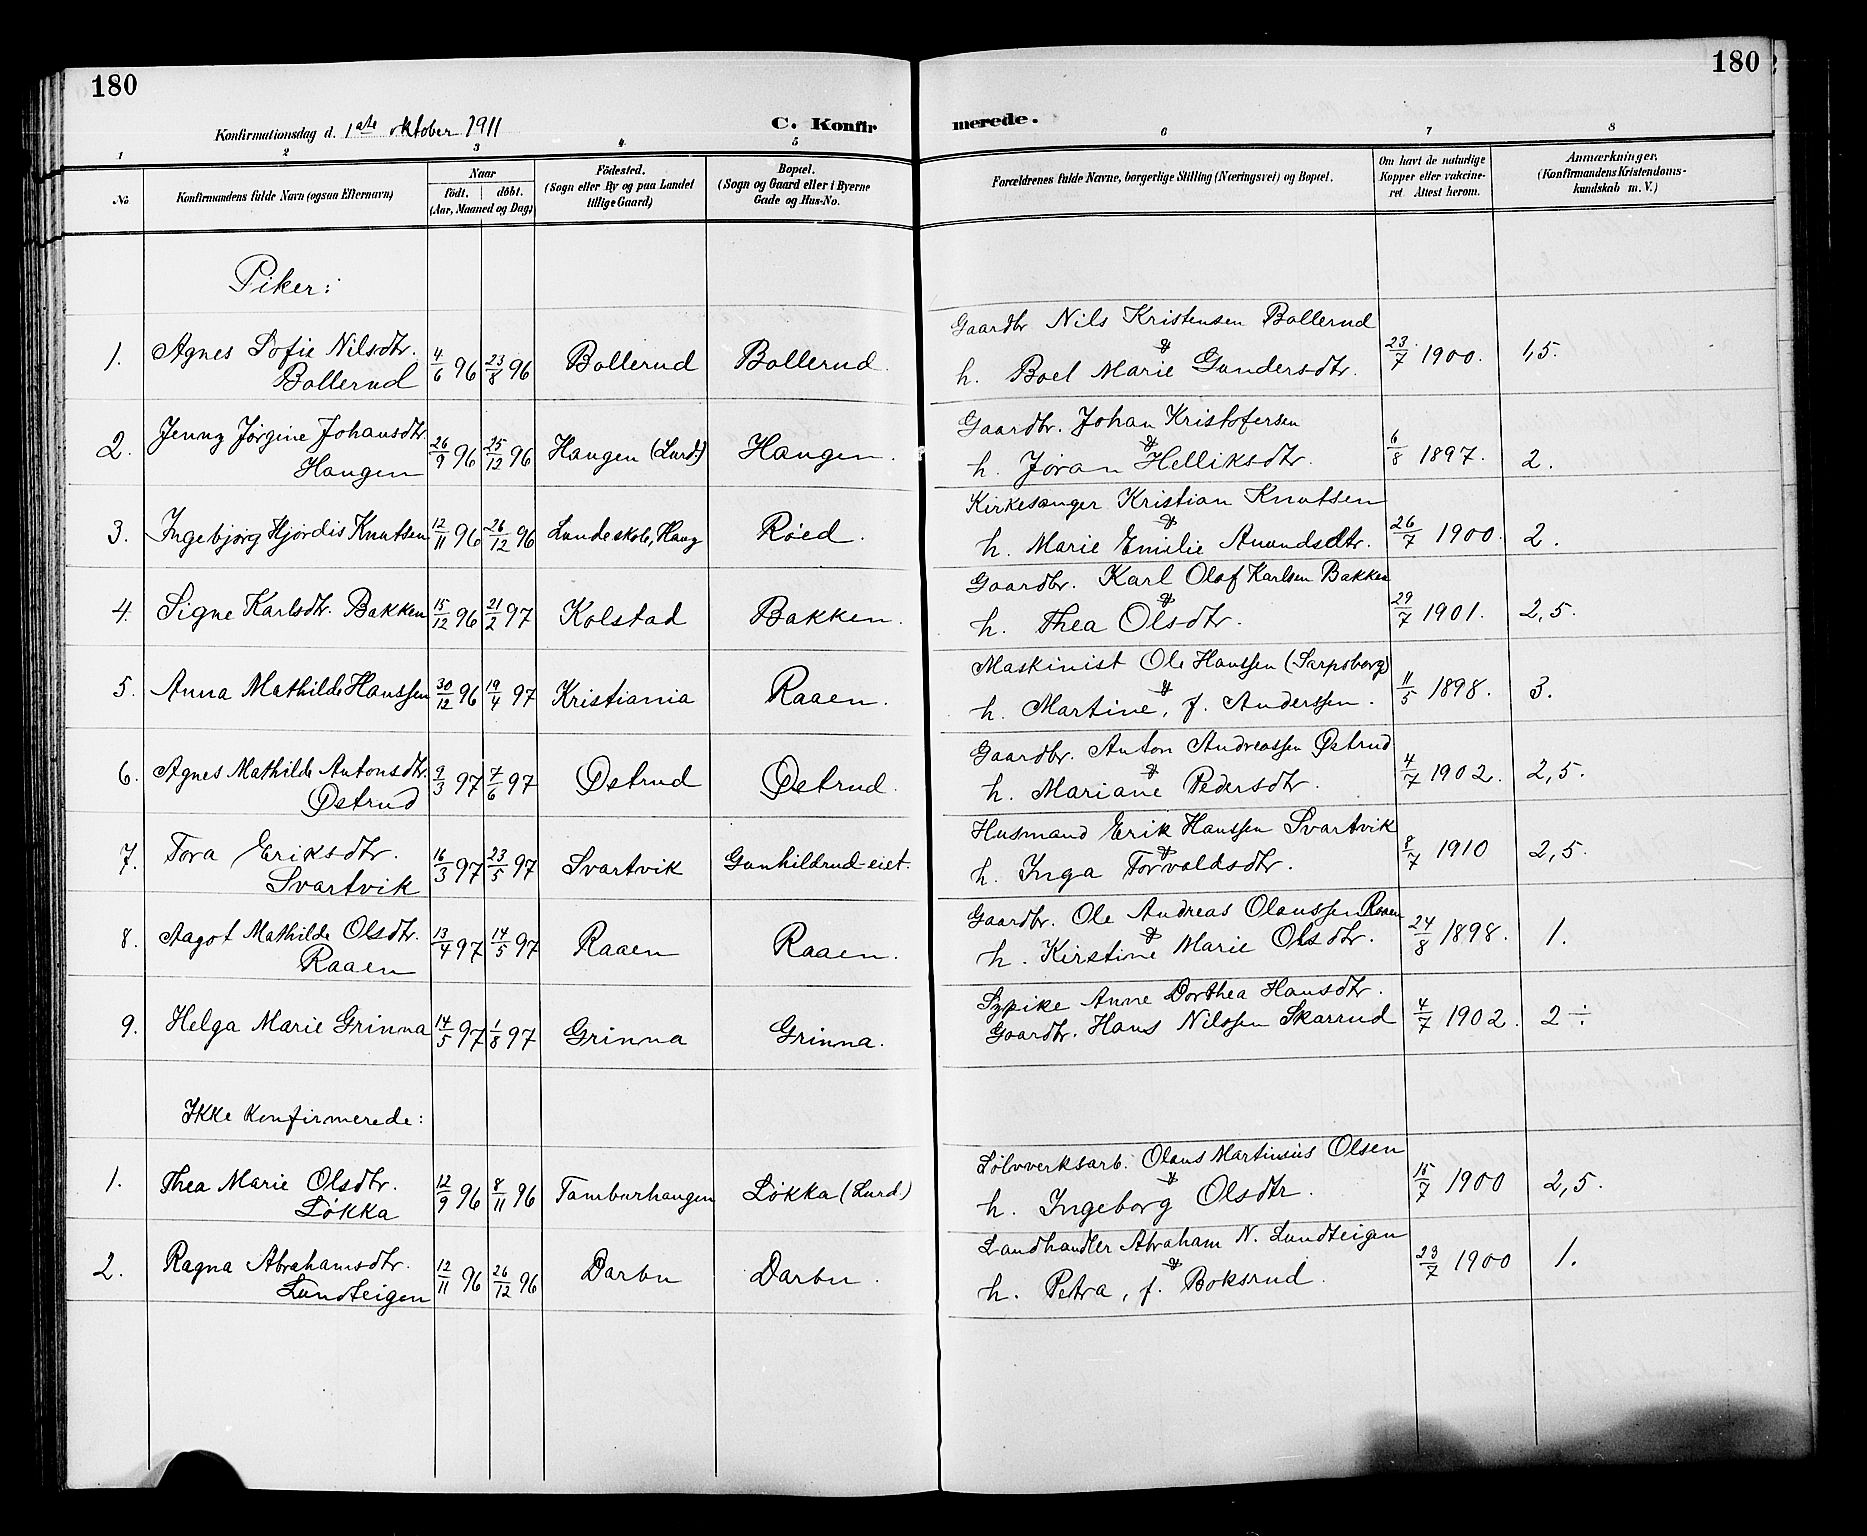 180
180
Konfirmationsdag d. 1ste oktober 1911
C. Konfir merede.
1 2 3 4 5 6 7 8
No
Konfirmandens fulde Navn (ogsaa Efternavn)
Naar
födt. döbt.
(Aar, Maaned og Dag)
Födested.
(Sogn eller By og paa Landet
tillige Gaard)
Bopæl.
(Sogn og Gaard eller i Byerne
Gade og Hus-No.
Forældrenes fulde Navne, borgerlige Stilling (Næringsvei) og Bopæl.
Om havt de naturlige
Kopper eller vakcine-
ret Attest herom.
Anmærkninger.
(Konfirmandens Kristendoms-
kundskab m. V.)
Piker:
1. Agnes Sofie Nilsdtr. Bollerud 4/6 96 23/8 96 Bollerud Bollerud. Gaardbr Nils Kristensen Bollerud & h. Boel Marie Gundersdtr. 23/7 1900. 1,5.
2. Jenny Jørgine Johansdtr. Haugen 26/9 96 25/12 96 Haugen (Lurd.) Haugen. Gaardbr. Johan Kristofersen & h. Jøran Helliksdtr. 6/8 1897. 2.
3. Ingebjørg Hjørdis Knutsen 12/11 96 26/12 96 Lunde skole, Haug Røed. Kirkesanger Kristian Knutsen & h. Marie Emilie Anundsdtr. 26/7 1900. 2.
4. Signe Karlsdtr. Bakken 15/12 96 21/2 97 Kolstad Bakken. Gaardbr. Karl Olaf Karlsen Bakken & h. Thea Olsdtr. 29/7 1901. 2,5.
5. Anna Mathilde Hanssen 30/12 96 19/4 97 Kristiania Raaen. Maskinist Ole Hanssen (Sarpsborg) & h. Martine, f. Anderssen. 11/5 1898. 3.
6. Agnes Mathilde Antonsdtr. Østrud 9/3 97 7/6 97 Østrud Østrud. Gaardbr. Anton Andreassen Østrud & h. Mariane Pedersdtr. 4/7 1902. 2,5.
7. Tora Eriksdtr. Svartvik 16/3 97 23/5 97 Svartvik Gunhildrud-eiet. Husmand Erik Hanssen Svartvik & h. Inga Torvaldsdtr. 8/7 1910 2,5.
8. Aagot Mathilde Olsdtr. Raaen 13/4 97 14/5 97 Raaen Raaen. Gaardbr. Ole Andreas Olaussen Raaen & h. Kirstine Marie Olsdtr. 24/8 1898. 1.
9. Helga Marie Grinna 14/5 97 1/8 97 Grinna Grinna. Sypike Anne Dorthea Hansdtr. Gaardbr. Hans Nilssen Skarrud 4/7 1902. 2÷
Ikke konfirmerede:
1. Thea Marie Olsdtr. Løkka 12/9 96 8/11 96 Tamburhaugen Løkka (Lurd.) Sølvverksarb. Olaus Martinius Olsen & h. Ingeborg Olsdtr. 15/7 1900 2,5.
2. Ragna Abrahamsdtr. Lundteigen 12/11 96 26/12 96 Darbu Darbu. Landhandler Abraham N. Lundteigen & h. Petra, f. Boksrud. 23/7 1900 1.